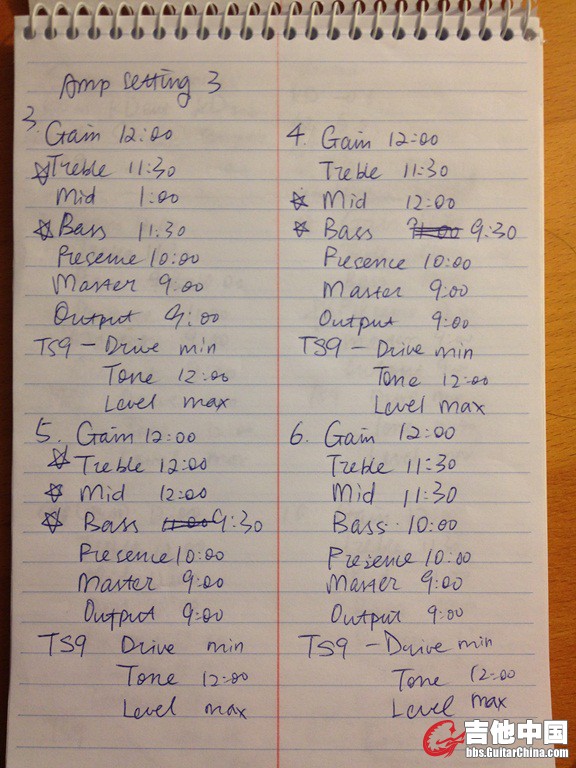 Amp Setting 3
3. Gain 12:00
☆Treble 11:30
Mid 1:00
☆ Bass 11:30
Presence 10:00
Master 9:00
Output 9:00
TS9 - Drive min
Tone 12:00
Level max
4. Gain 12:00
Treble 11:30
☆ Mid 12:00
☆ Bass 9:30
Presence 10:00
Master 9:00
Output 9:00
TS9 - Drive min
Tone 12:00
Level max
5. Gain 12:00
☆ Treble 12:00
☆ Mid 12:00
☆ Bass 11:00 9:30
Presence 10:00
Master 9:00
Output 9:00
TS9 Drive min
Tone 12:00
Level max
6. Gain 12:00
Treble 11:30
Mid 11:30
Bass 10:00
Presence 10:00
Master 9:00
Output 9:00
TS9 - Drive min
Tone 12:00
Level max
吉他中国
bbs.GuitarChina.com